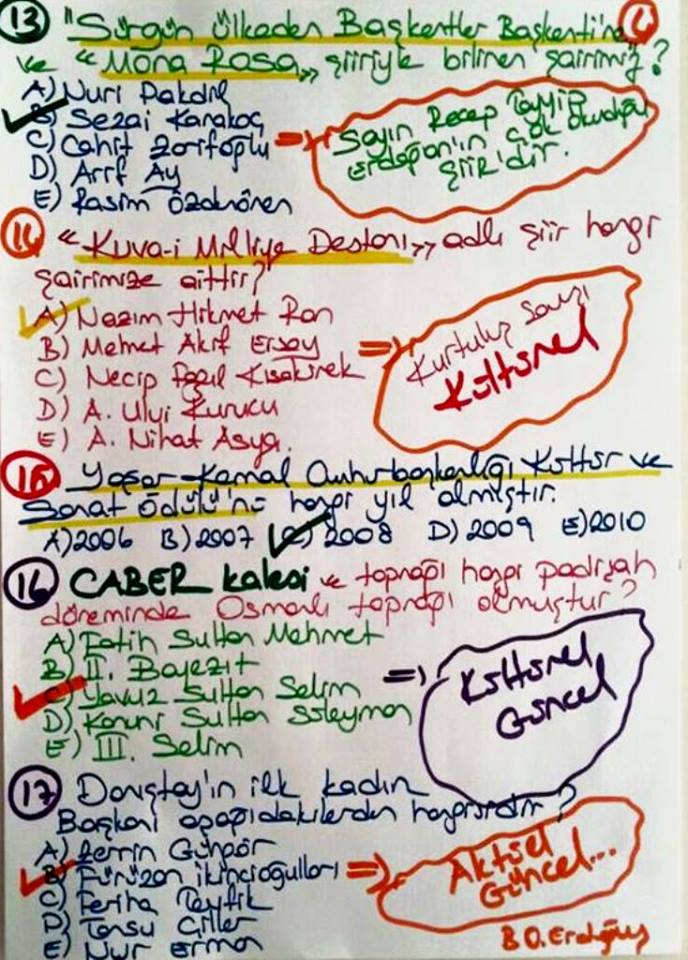 13 "Sürgün Ülkeden Başkentler Başkenti'ne
ve "Mona Rosa" şiiriyle bilinen şairimiz?
A) Nuri Pakdil
B) Sezai Karakoç
C) Cahit Zarifoğlu
D) Arif Ay
E) Rasim Özdenören
=> Sayın Recep Tayyip
Erdoğan'ın çok okuduğu
şiir'dir.
14 "Kuva-i Milliye Destanı" adlı şiir hangi
şairimize aittir?
A) Nazım Hikmet Ran
B) Mehmet Akif Ersoy
C) Necip Fazıl Kısakürek
D) A. Ulvi Kurucu
E) A. Nihat Asya.
=> Kurtuluş Savaşı
Kültürel
15 Yaşar Kemal Cumhurbaşkanlığı Kültür ve
Sanat Ödülü'nü hangi yıl almıştır.
A) 2006 B) 2007 C) 2008 D) 2009 E) 2010
16 CABER kalesi ve toprağı hangi padişah
döneminde Osmanlı toprağı olmuştur?
A) Fatih Sultan Mehmet
B) II. Bayezit
C) Yavuz Sultan Selim
D) Kanuni Sultan Süleyman
E) III. Selim
=> Kültürel
Güncel
17 Danıştay'ın ilk kadın
Başkanı aşağıdakilerden hangisidir?
A) Zerrin Güngör
B) Füruzan İkincioğulları
C) Feriha Tevfik
D) Tansu Çiller
E) Nur Erman
=> Aktüel
Güncel...
B Ö. Erdoğuş